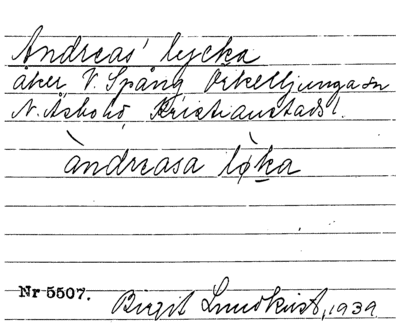 Andreas' lycka
åker V. Spång Örkelljunga sn
N. Åsbo hd Kristianstads l.
àndreasa lø̀ka
Nr 5507.
Birgit Lundkvist, 1939